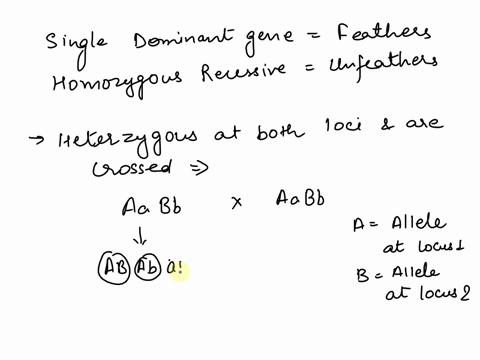 Single Dominant gene = Feathers
Homozygous Recessive = Unfeathers
→ Heterzygous at both loci & are
crossed ⇒
Aa Bb x AaBb
↓
AB Ab a
A = Allele
at locus 1
B = Allele
at locus 2